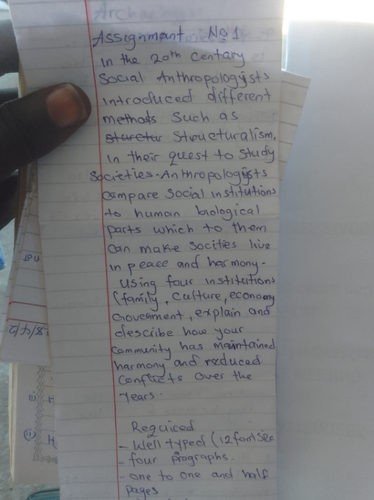 Assignment No 1
In the 20th Centary
Social Anthropologists
introduced different
methods Such as
Structuralism,
in their quest to study
Societies. Anthropologists
compare Social institutions
to human biological
parts which to them
Can make Socities live
in peace and harmony.
Using four institutions
(family, Culture, economy
Government, explain and
describe how your
Community has maintained
harmony and reduced
Conflicts over the
years.
Required
- Well typed (12 font
- four
- one to one and half
pages